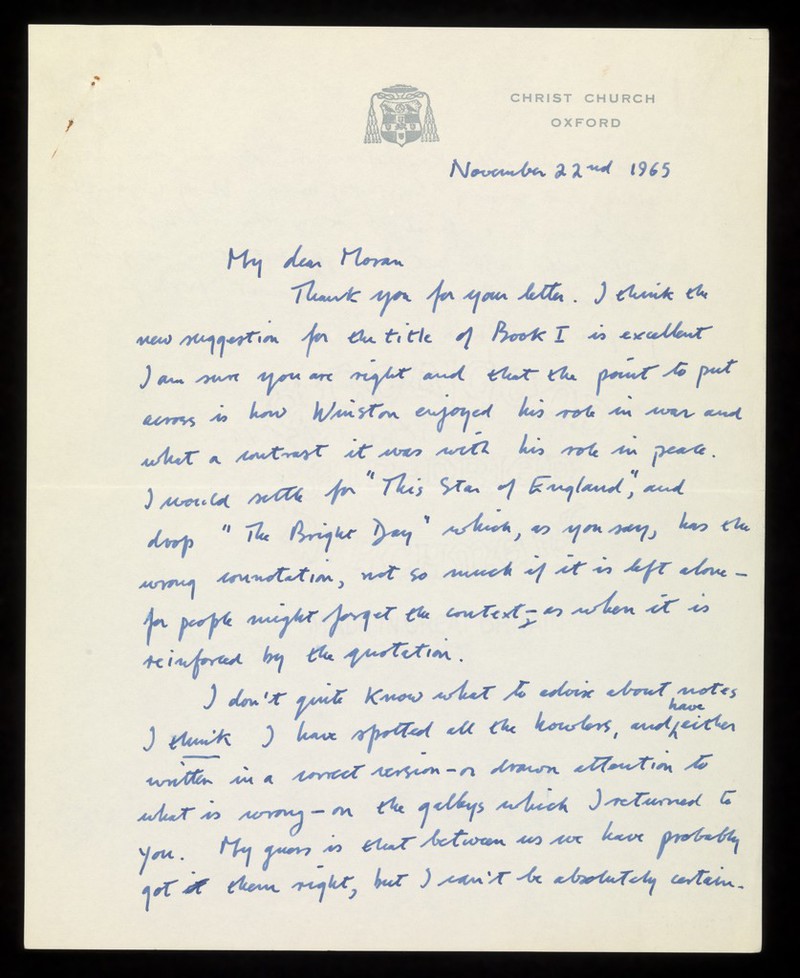 CHRIST CHURCH
OXFORD
November 22nd 1965
My dear Moran
Thank you for your letter. I think the
new suggestion for the title of Book I is excellent
I am sure you are right and that the point to put
across is how Winston enjoyed his role in war and
what a contrast it was with his role in peace.
I would settle for "This Star of England", and
drop "The Bright Day" which, as you say, has the
wrong connotation, not so much if it is left alone -
for people might forget the context - as when it is
reinforced by the quotation.
I don't quite know what to advise about notes
I think I have spotted all the howlers, and have either
written in a correct version - or drawn attention to
what is wrong - on the galleys which I returned to
you. My guess is that between us we have probably
got it them right, but I can't be absolutely certain.